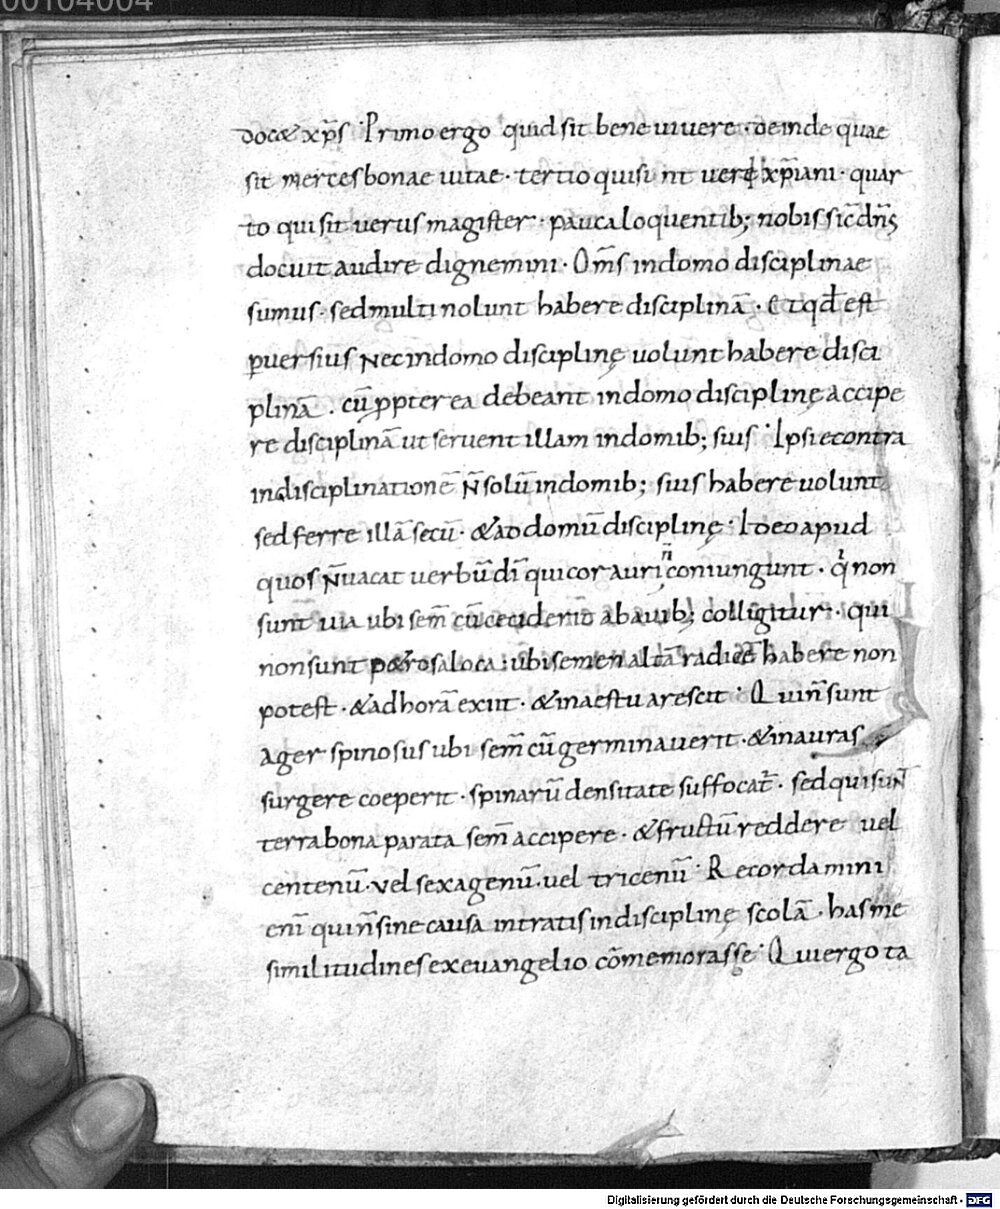 00104004
docet xp̄s · Primo ergo quid sit bene uiuere · deinde quae
sit merces bonae uitae · tertio qui sint uere xp̄iani · quar
to qui sit uerus magister · pauca loquentib; nobis sic dn̄s
docuit audire dignemini · Om̄s in domo disciplinae
sumus · sed multi nolunt habere disciplinā · et qd̄ est
peruersius nec in domo disciplinę uolunt habere disci
plinā · cū ppterea debeant in domo disciplinę accipe
re disciplinā ut seruent illam in domib; suis · Ipsi econtra
indisciplinationē n̄ solū in domib; suis habere uolunt
sed ferre illā secū · & ad domū disciplinę · Ideo apud
quos n̄ uacat uerbū dī qui cor auri n̄ coniungunt · qi non
sunt uia ubi sem̄ cū ceciderit ab auib; colligitur · qui
non sunt petrosa loca · ubi semen altā radicē habere non
potest · & ad horā exiit · & in aestu arescit · Qui n̄ sunt
ager spinosus ubi sem̄ cū germinauerit · & in auras
surgere coeperit · spinarū densitate suffocat̄ · sed qui sunt
terra bona parata sem̄ accipere · & fructū reddere uel
centenū · vel sexagenū · uel tricenū · Recordamini
enī qui n̄ sine causa intratis in disciplinę scolā · has me
similitudines ex euangelio cōmemorasse · Qui ergo ta
Digitalisierung gefördert durch die Deutsche Forschungsgemeinschaft - DFG